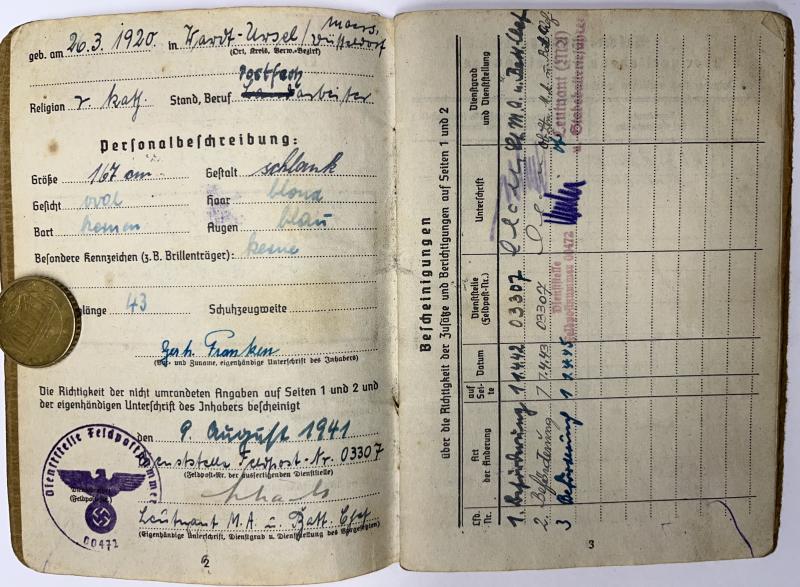 geb. am 20.3.1920. in Hardt-Ursel / Moers, Düsseldorf
(Ort, Kreis, Verw.-Bezirk)
Postfach
Religion r. kath. Stand, Beruf arbeiter
Personalbeschreibung:
Größe 167 cm Gestalt schlank
Gesicht oval Haar blond
Bart keinen Augen blau
Besondere Kennzeichen (z. B. Brillenträger): keine
länge 43 Schuhzeugweite
Gerh. Franken
(Vor- und Zuname, eigenhändige Unterschrift des Inhabers)
Die Richtigkeit der nicht umrandeten Angaben auf Seiten 1 und 2 und
der eigenhändigen Unterschrift des Inhabers bescheinigt
den 9. August 1941
Dienststelle Feldpost-Nr. 03307
(Feldpost-Nr. der ausfertigenden Dienststelle)
Leutnant M.A. u. Batt. Chef
(Eigenhändige Unterschrift, Dienstgrad u. Dienststellung des Vorgesetzten)
Dienststelle Feldpostnummer
00472
2
Bescheinigungen
über die Richtigkeit der Zusätze und Berichtigungen auf Seiten 1 und 2
Lfd. Nr. Art der Änderung auf Sei-te Datum Dienststelle (Feldpost-Nr.) Unterschrift Dienstgrad und Dienststellung
1. Beförderung 1 1.4.42 03307 M.A. u. Batt. Chef
2. Beförderung 1 1.4.43 03307
3 Beförderung 1
Dienststelle
Feldpostnummer 00472
Leutnant (MA)
3